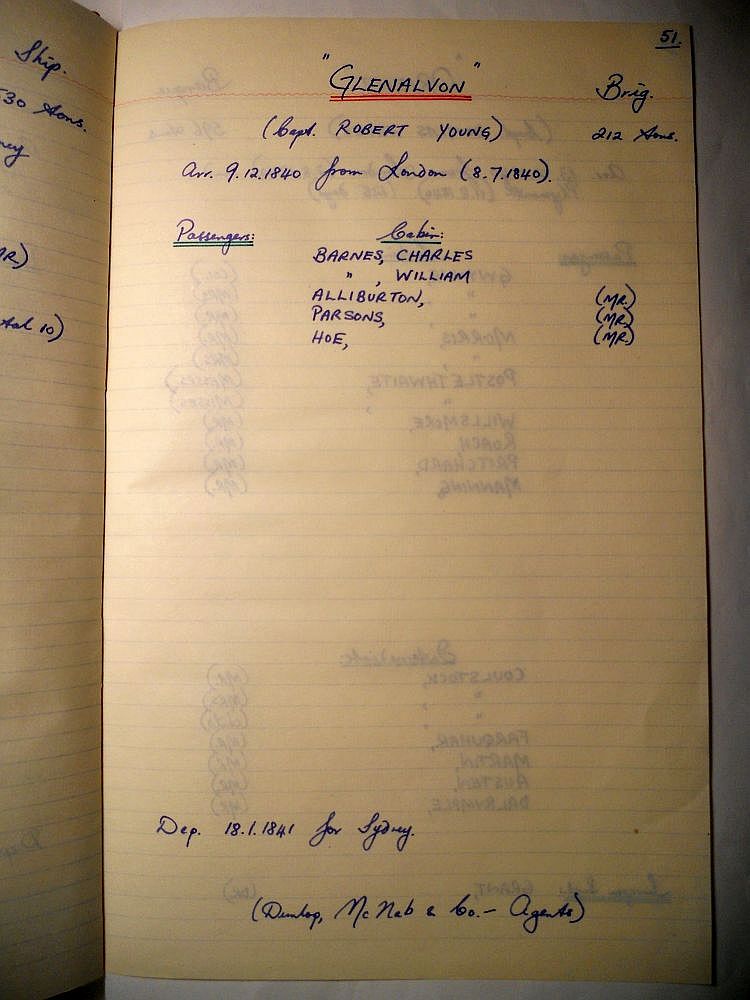 Ship.
530 Tons.
51.
"GLENALVON"
Brig.
(Capt. ROBERT YOUNG)
212 Tons.
Arr. 9.12.1840 from London (8.7.1840).
Passengers:
Cabin:
BARNES, CHARLES
" , WILLIAM
ALLIBURTON, (MR.)
PARSONS, (MR.)
HOE, (MR.)
Dep. 18.1.1841 for Sydney.
(Dunlop, McNab & Co. - Agents)